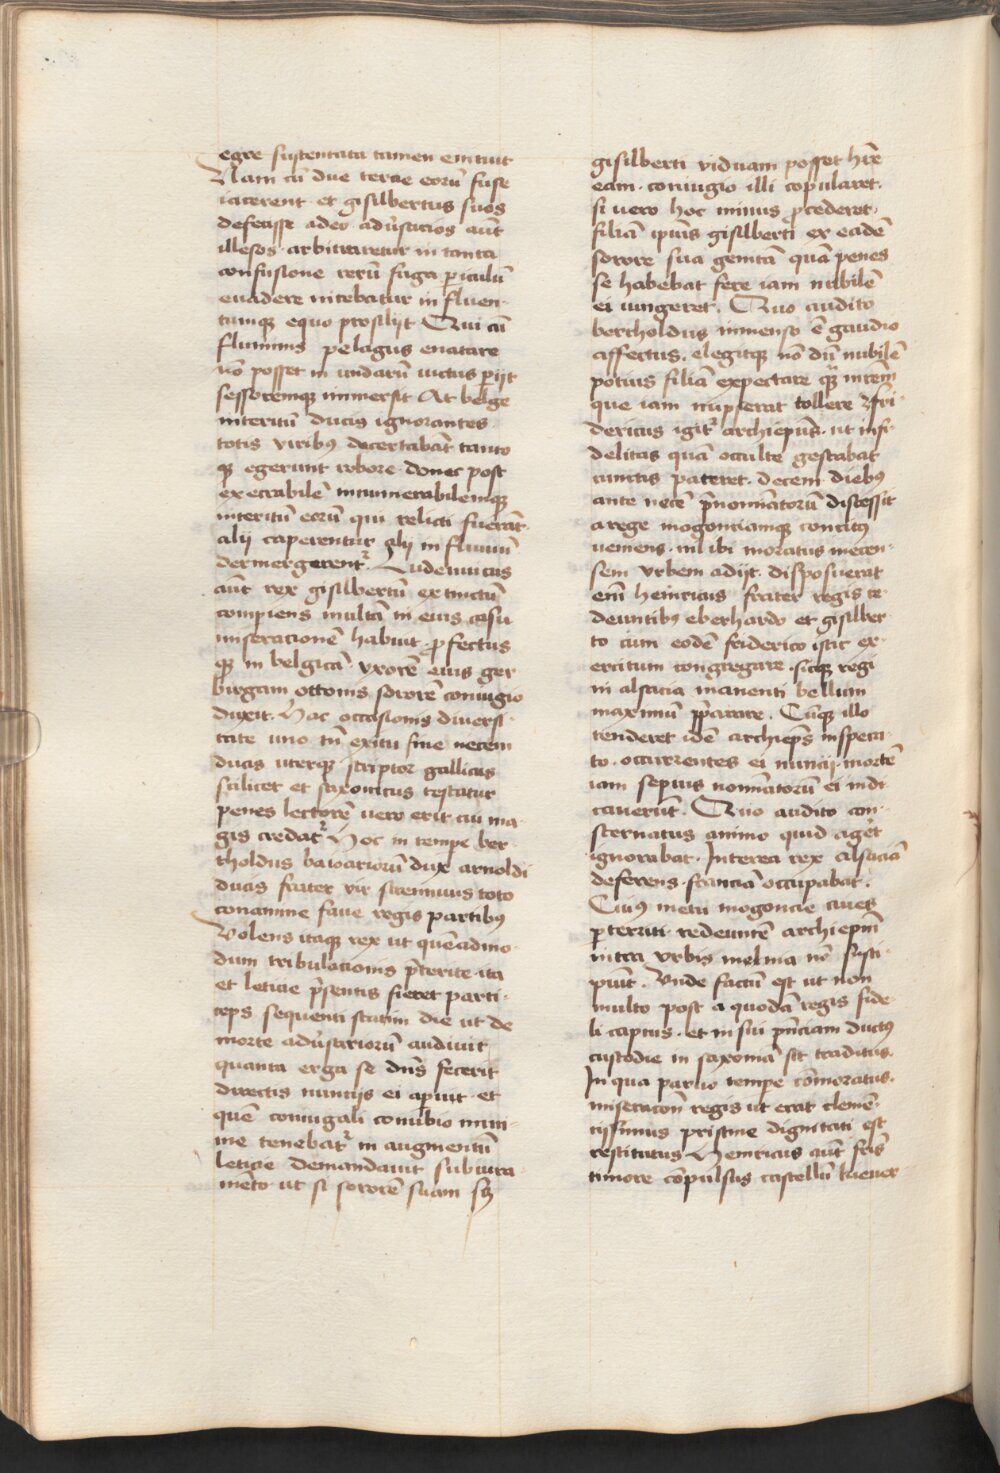 egre sustentata tamen emicuit
Nam cũ due tercie eorũ fuse
iacerent et gisilbertus suos
defecisse adeo adũsarios aũt
illesos arbitraretur in tanta
confusione rerũ fuga piculũ
euadere nitebatur in fluen-
tumq; equo prosilijt Qui cũ
fluminis pelagus enatare
nõ posset in undarũ ictus perijt
sessoremq; immersit At belge
interitũ ducis ignorantes
totis viribꝰ decertabãt tanto
qꝫ egerunt robore donec post
execrabilẽ innumerabilemqꝫ
interitũ eorũ qui relicti fuerãt
alij caperentur alij in fluuiũ
dermergerent᷑ Ludewicus
aũt rex gisilbertũ extinctũ
comperiens multã in eius casu
miseracionẽ habuit pfectus
qꝫ in belgicã vxorẽ eius ger
birgam ottonis sororẽ coniugio
duxit. Hac occasionis diuersi-
tate uno tñ exitu fine necem
ducis uterqꝫ scriptor gallicus
scilicet et saxonicus testatur
penes lectorẽ uero erit cui ma-
gis credat᷑ Hoc in tempe ber-
tholdus baioariorũ dux arnoldi
ducis frater vir strennuus toto
conamine faue regis partibꝰ
Volens itaqꝫ rex ut quẽadmo-
dum tribulacionis p̃terite ita
et leticie p̃sentis fieret parti-
ceps sequenti statim die ut de
morte adũsariorũ audiuit
quanta erga se dñs fecerit
directis nuncijs ei apuit et
quẽ coniugali conubio mini-
me tenebat᷑ in augmentũ
leticie demandauit sub iura
mẽto ut si sororẽ suam sꝫ
gisilberti viduam posset hr̃e
eam coniugio illi copularet.
si uero hoc minus pcederet.
filiã ipuis gisilberti ex eadẽ
sorore sua genitã quã penes
se habebat fere iam nubilẽ
ei iungeret. Quo audito
bertholdus inmenso ẽ gaudio
affectus. elegitqꝫ nõ dũ nubilẽ
potius filiã expectare q̃ mr̃em
que iam nupserat tollere Fri-
dericus igit᷑ archiepũs. ut infi-
delitas quã occulte gestabat
cunctis pateret. decem diebꝰ
ante necẽ p̃nominatorũ discessit
a rege mogonciamqꝫ concitꝰ
ueniens. nil ibi moratus mecen-
sem vrbem adijt. disposuerat
em̃ heinricus frater regis re-
deuntibꝰ eberhardo et gisilber
to cum eodẽ friderico istic ex-
ercitum congregare. sicqꝫ regi
in alsacia manenti bellum
maximũ pp̃arare. Cũqꝫ illo
tenderet idẽ archiep̃s insperа-
to. occurrentes ei nuncij mortẽ
iam sepius nominatorũ ei indi
cauerũt. Quo audito con-
sternatus animo quid aget
ignorabat. Interea rex alsaciã
deferens franciã occupabat.
Cuiꝰ metu mogoncie ciues
pterriti redeuntẽ archiepm̃
intra vrbis melinia nõ susti-
puit. Unde factũ est ut non
multo post a quodã regis fide-
li captus. et in sui pñciam ductꝰ
custodie in saxoniã sit traditus.
In qua paruo tempe cõmoratus.
miseracõn regis ut erat clemẽ-
tissimus pristine dignitati est
restitutus Heinricus aũt fr̃is
timore cõpulsus castellũ kieuer